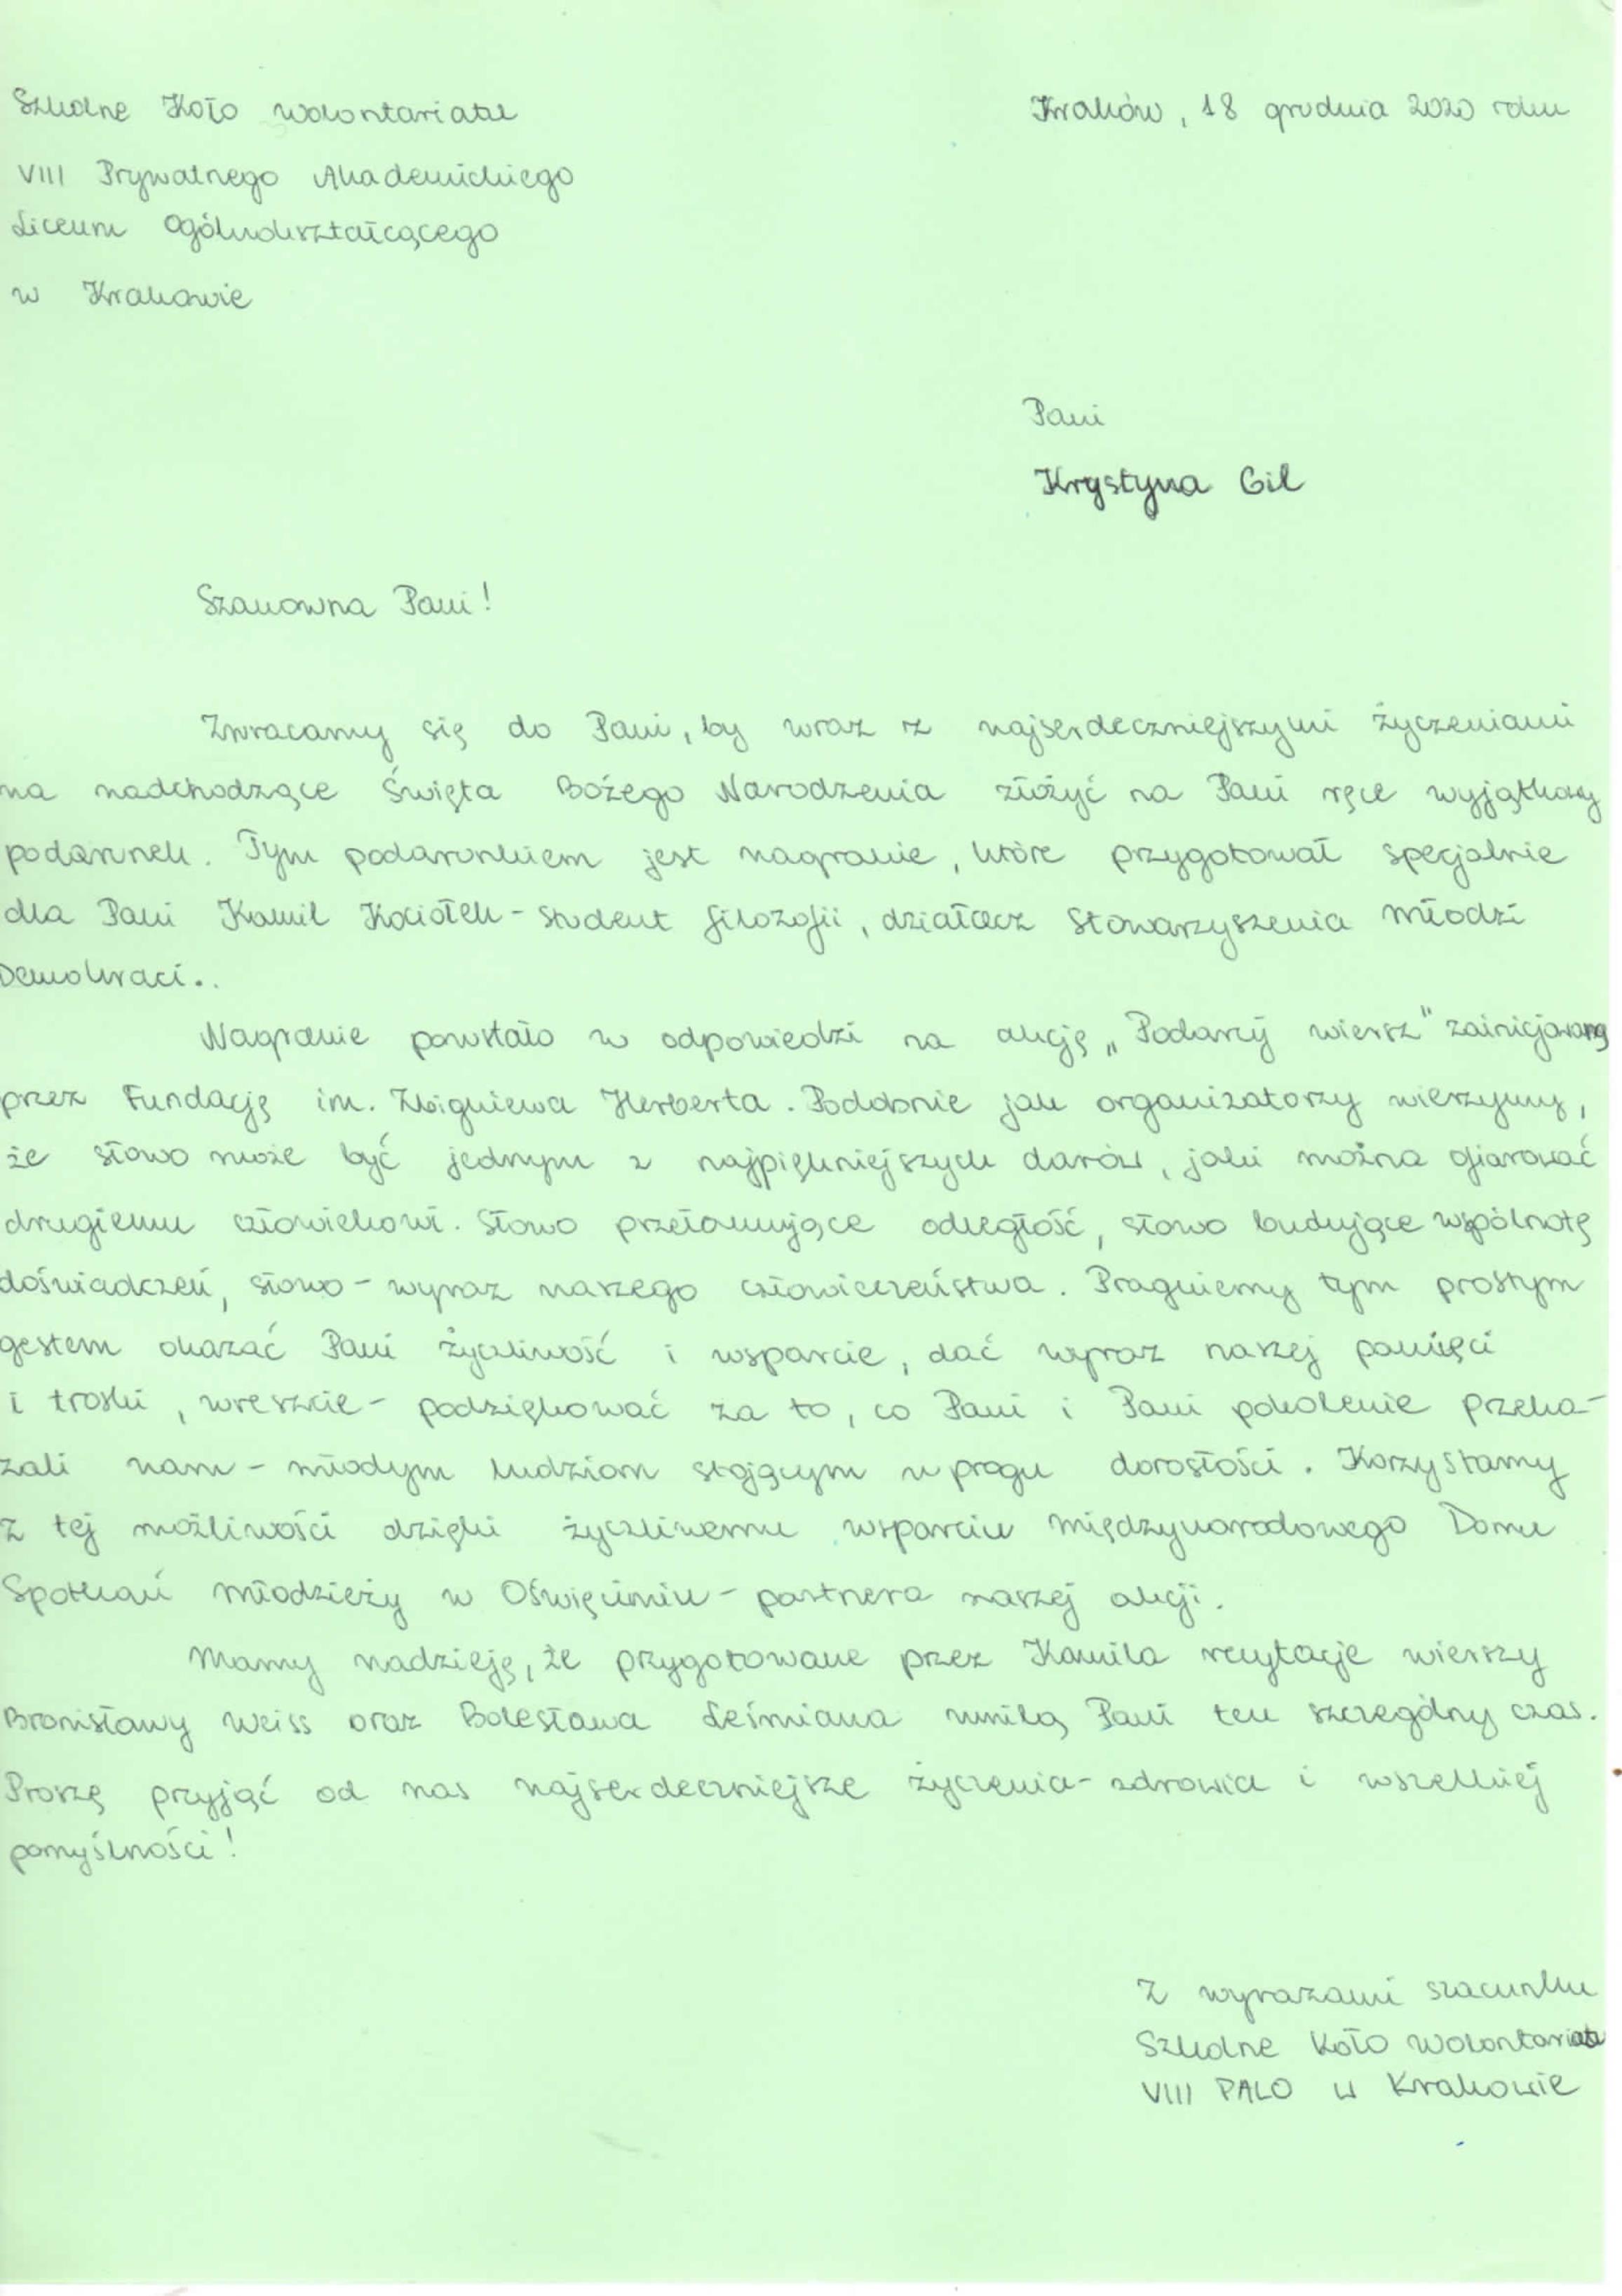 Szkolne Koło Wolontariatu
Kraków, 18 grudnia 2020 roku
VIII Prywatnego Akademickiego
Liceum Ogólnokształcącego
w Krakowie
Pani
Krystyna Gil
Szanowna Pani!
Zwracamy się do Pani, by wraz z najserdeczniejszymi życzeniami
na nadchodzące Święta Bożego Narodzenia złożyć na Pani ręce wyjątkowy
podarunek. Tym podarunkiem jest nagranie, które przygotował specjalnie
dla Pani Kamil Kociołek - student filozofii, działacz Stowarzyszenia Młodzi
Demokraci..
Nagranie powstało w odpowiedzi na akcję „Podaruj wiersz" zainicjowaną
przez Fundację im. Zbigniewa Herberta. Podobnie jak organizatorzy wierzymy,
że słowo może być jednym z najpiękniejszych darów, jaki można ofiarować
drugiemu człowiekowi. Słowo przełamujące odległość, słowo budujące wspólnotę
doświadczeń, słowo - wyraz naszego człowieczeństwa. Pragniemy tym prostym
gestem okazać Pani życzliwość i wsparcie, dać wyraz naszej pamięci
i troski, wreszcie - podziękować za to, co Pani i Pani pokolenie przeka-
zali nam - młodym ludziom stojącym u progu dorosłości. Korzystamy
z tej możliwości dzięki życzliwemu wsparciu Międzynarodowego Domu
Spotkań Młodzieży w Oświęcimiu - partnera naszej akcji.
Mamy nadzieję, że przygotowane przez Kamila recytacje wierszy
Bronisławy Weiss oraz Bolesława Leśmiana umilą Pani ten szczególny czas.
Proszę przyjąć od nas najserdeczniejsze życzenia - zdrowia i wszelkiej
pomyślności!
Z wyrazami szacunku
Szkolne Koło Wolontariatu
VIII PALO w Krakowie